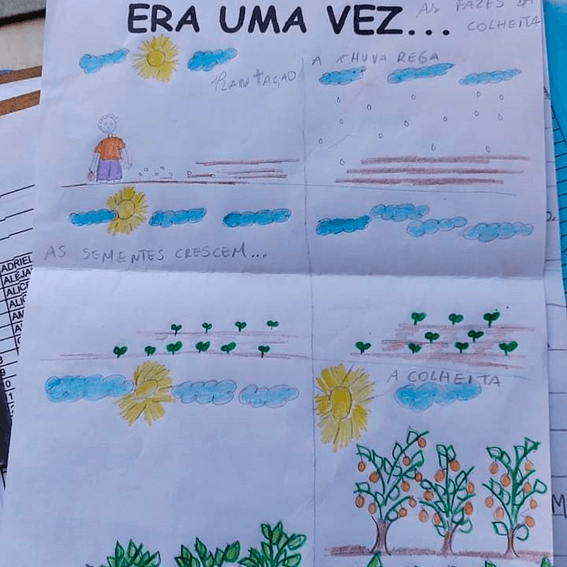 ERA UMA VEZ...
AS FAZES DA
COLHEITA
PLANTAÇAO
A CHUVA REGA
AS SEMENTES CRESCEM...
A COLHEITA
ADRIEL
ALEJA
ALICE